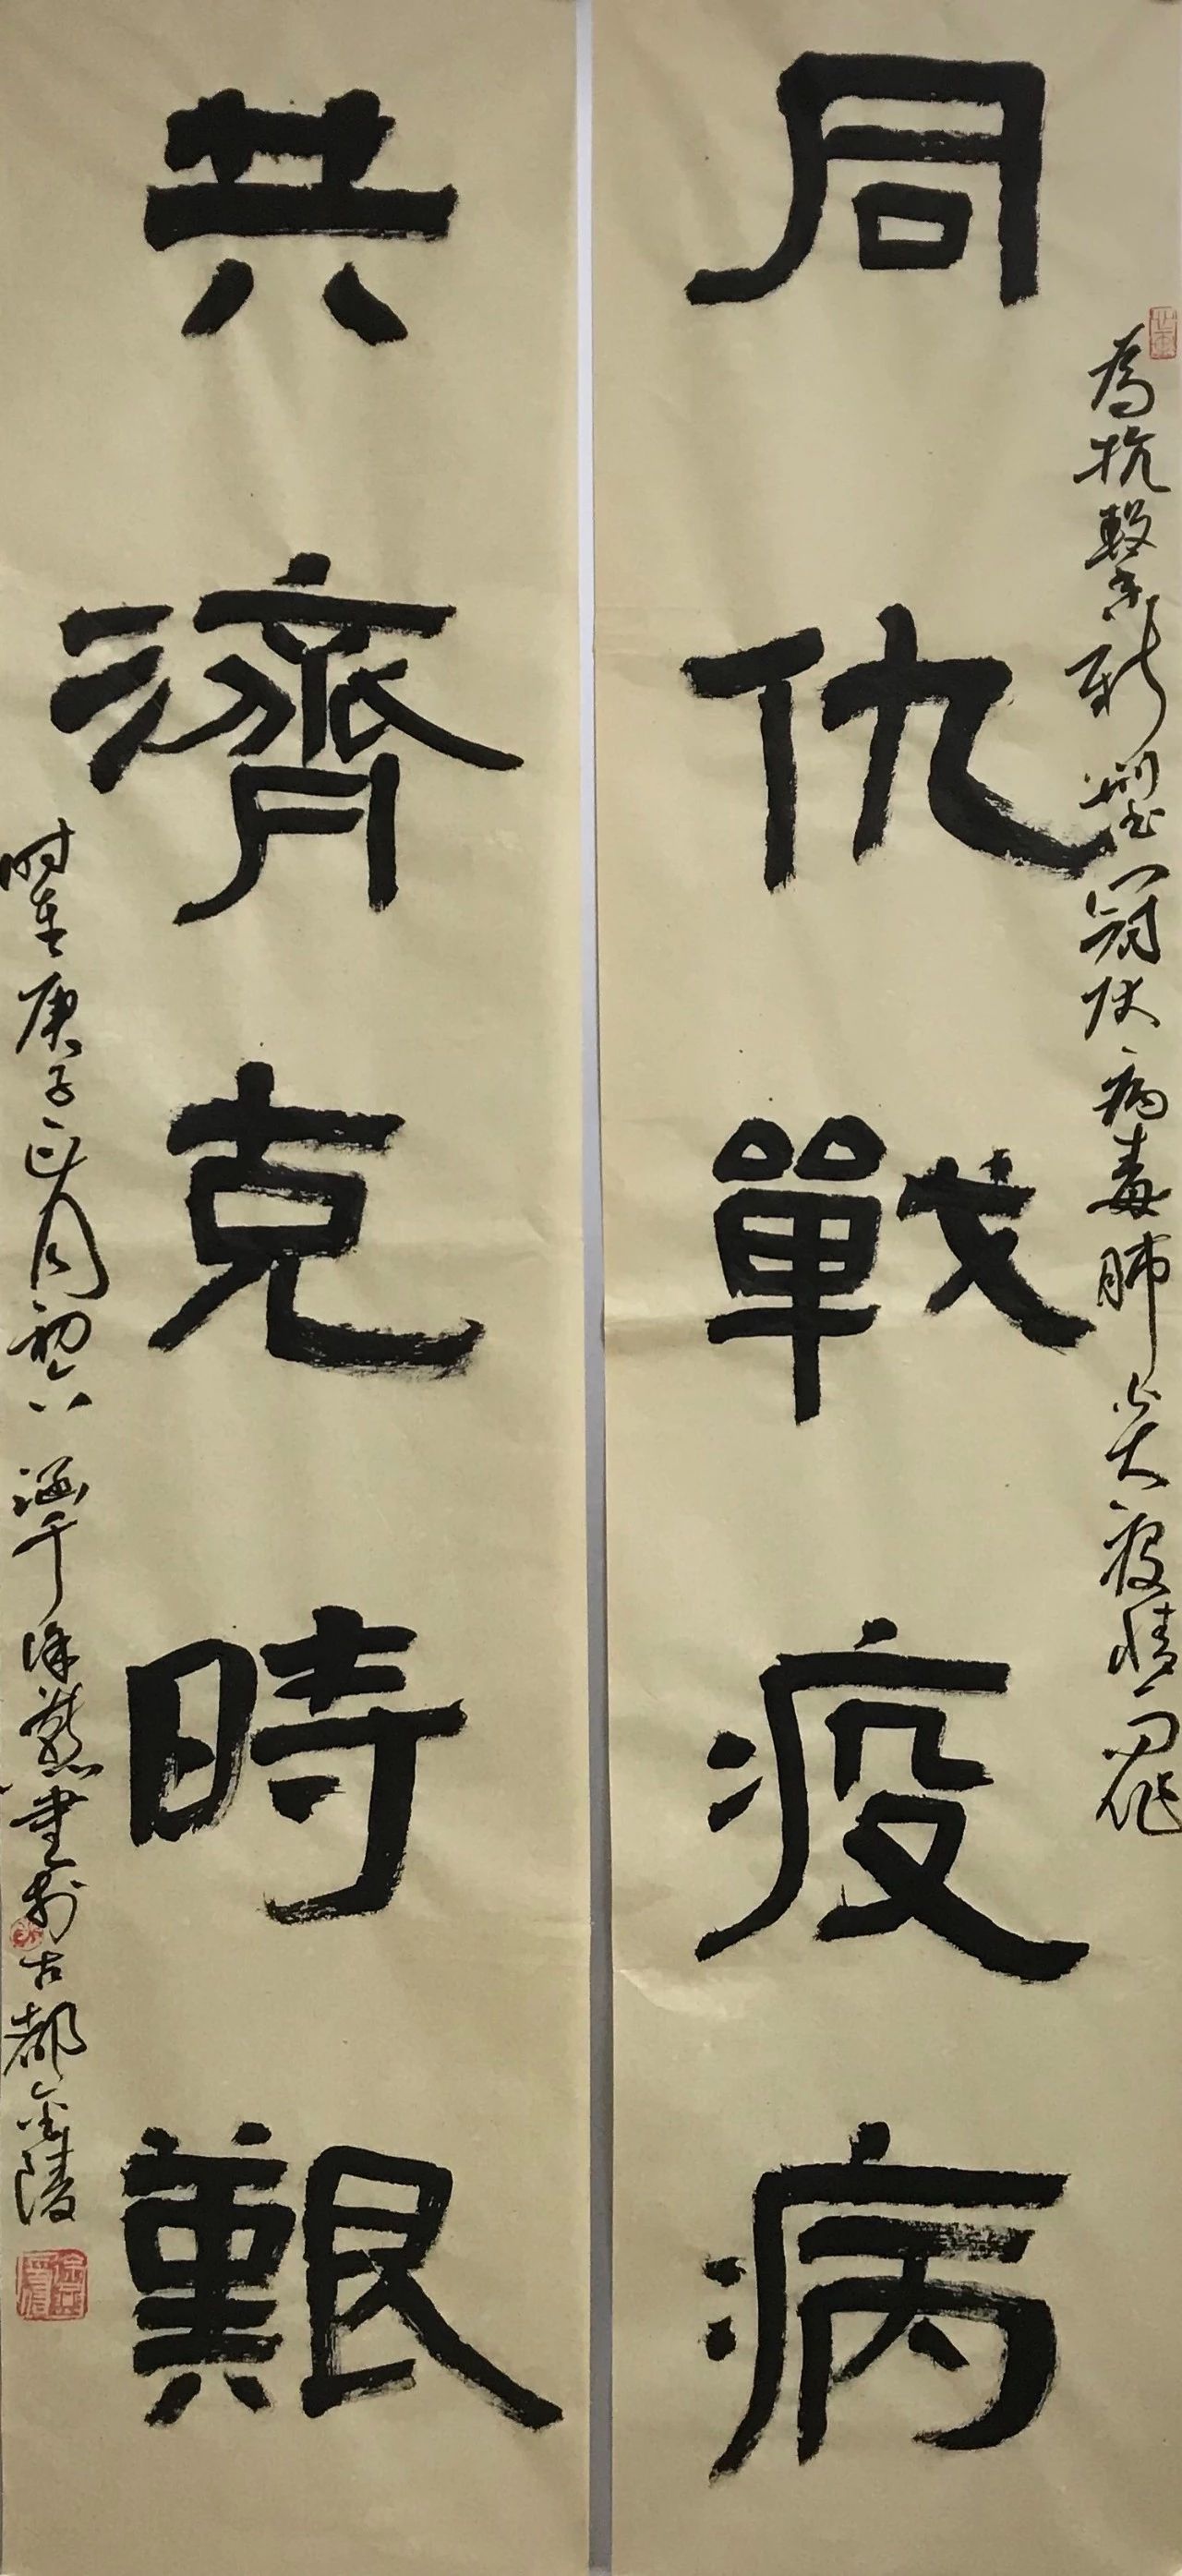 同仇戰疫病
為抗擊新型冠狀病毒肺炎疫情而作
共濟克時艱
時在庚子正月初六 涵千徐燕書於古都金陵